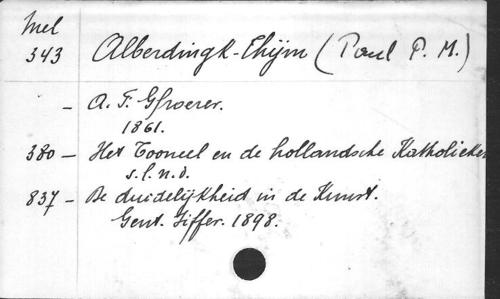 Mel
343 Alberdingk-Thijm (Paul P. M.)
- A. F. Gfroerer.
1861.
380 - Het Tooneel en de hollandsche Katholieken
s. l. n. d.
837 - De duidelijkheid in de Kunst.
Gent. Siffer. 1898.